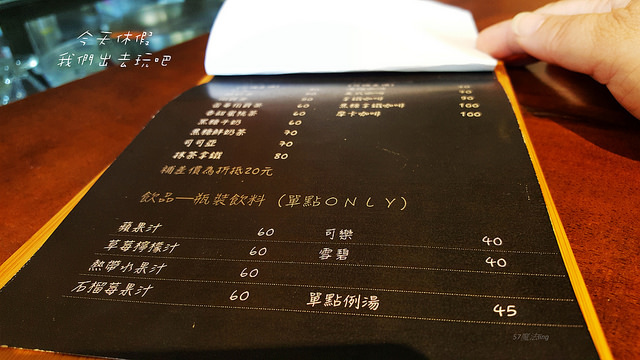 今天休假
我們出去玩吧
60
60 黑糖拿鐵咖啡 100
黑糖牛奶 60 摩卡咖啡 100
黑糖鮮奶茶 70
可可亞 70
抹茶拿鐵 80
補差價為折抵20元
飲品—瓶裝飲料 (單點ONLY)
蘋果汁 60 可樂 40
草莓檸檬汁 60 雪碧 40
熱帶水果汁 60
石榴莓果汁 60 單點例湯 45
57魔法ing